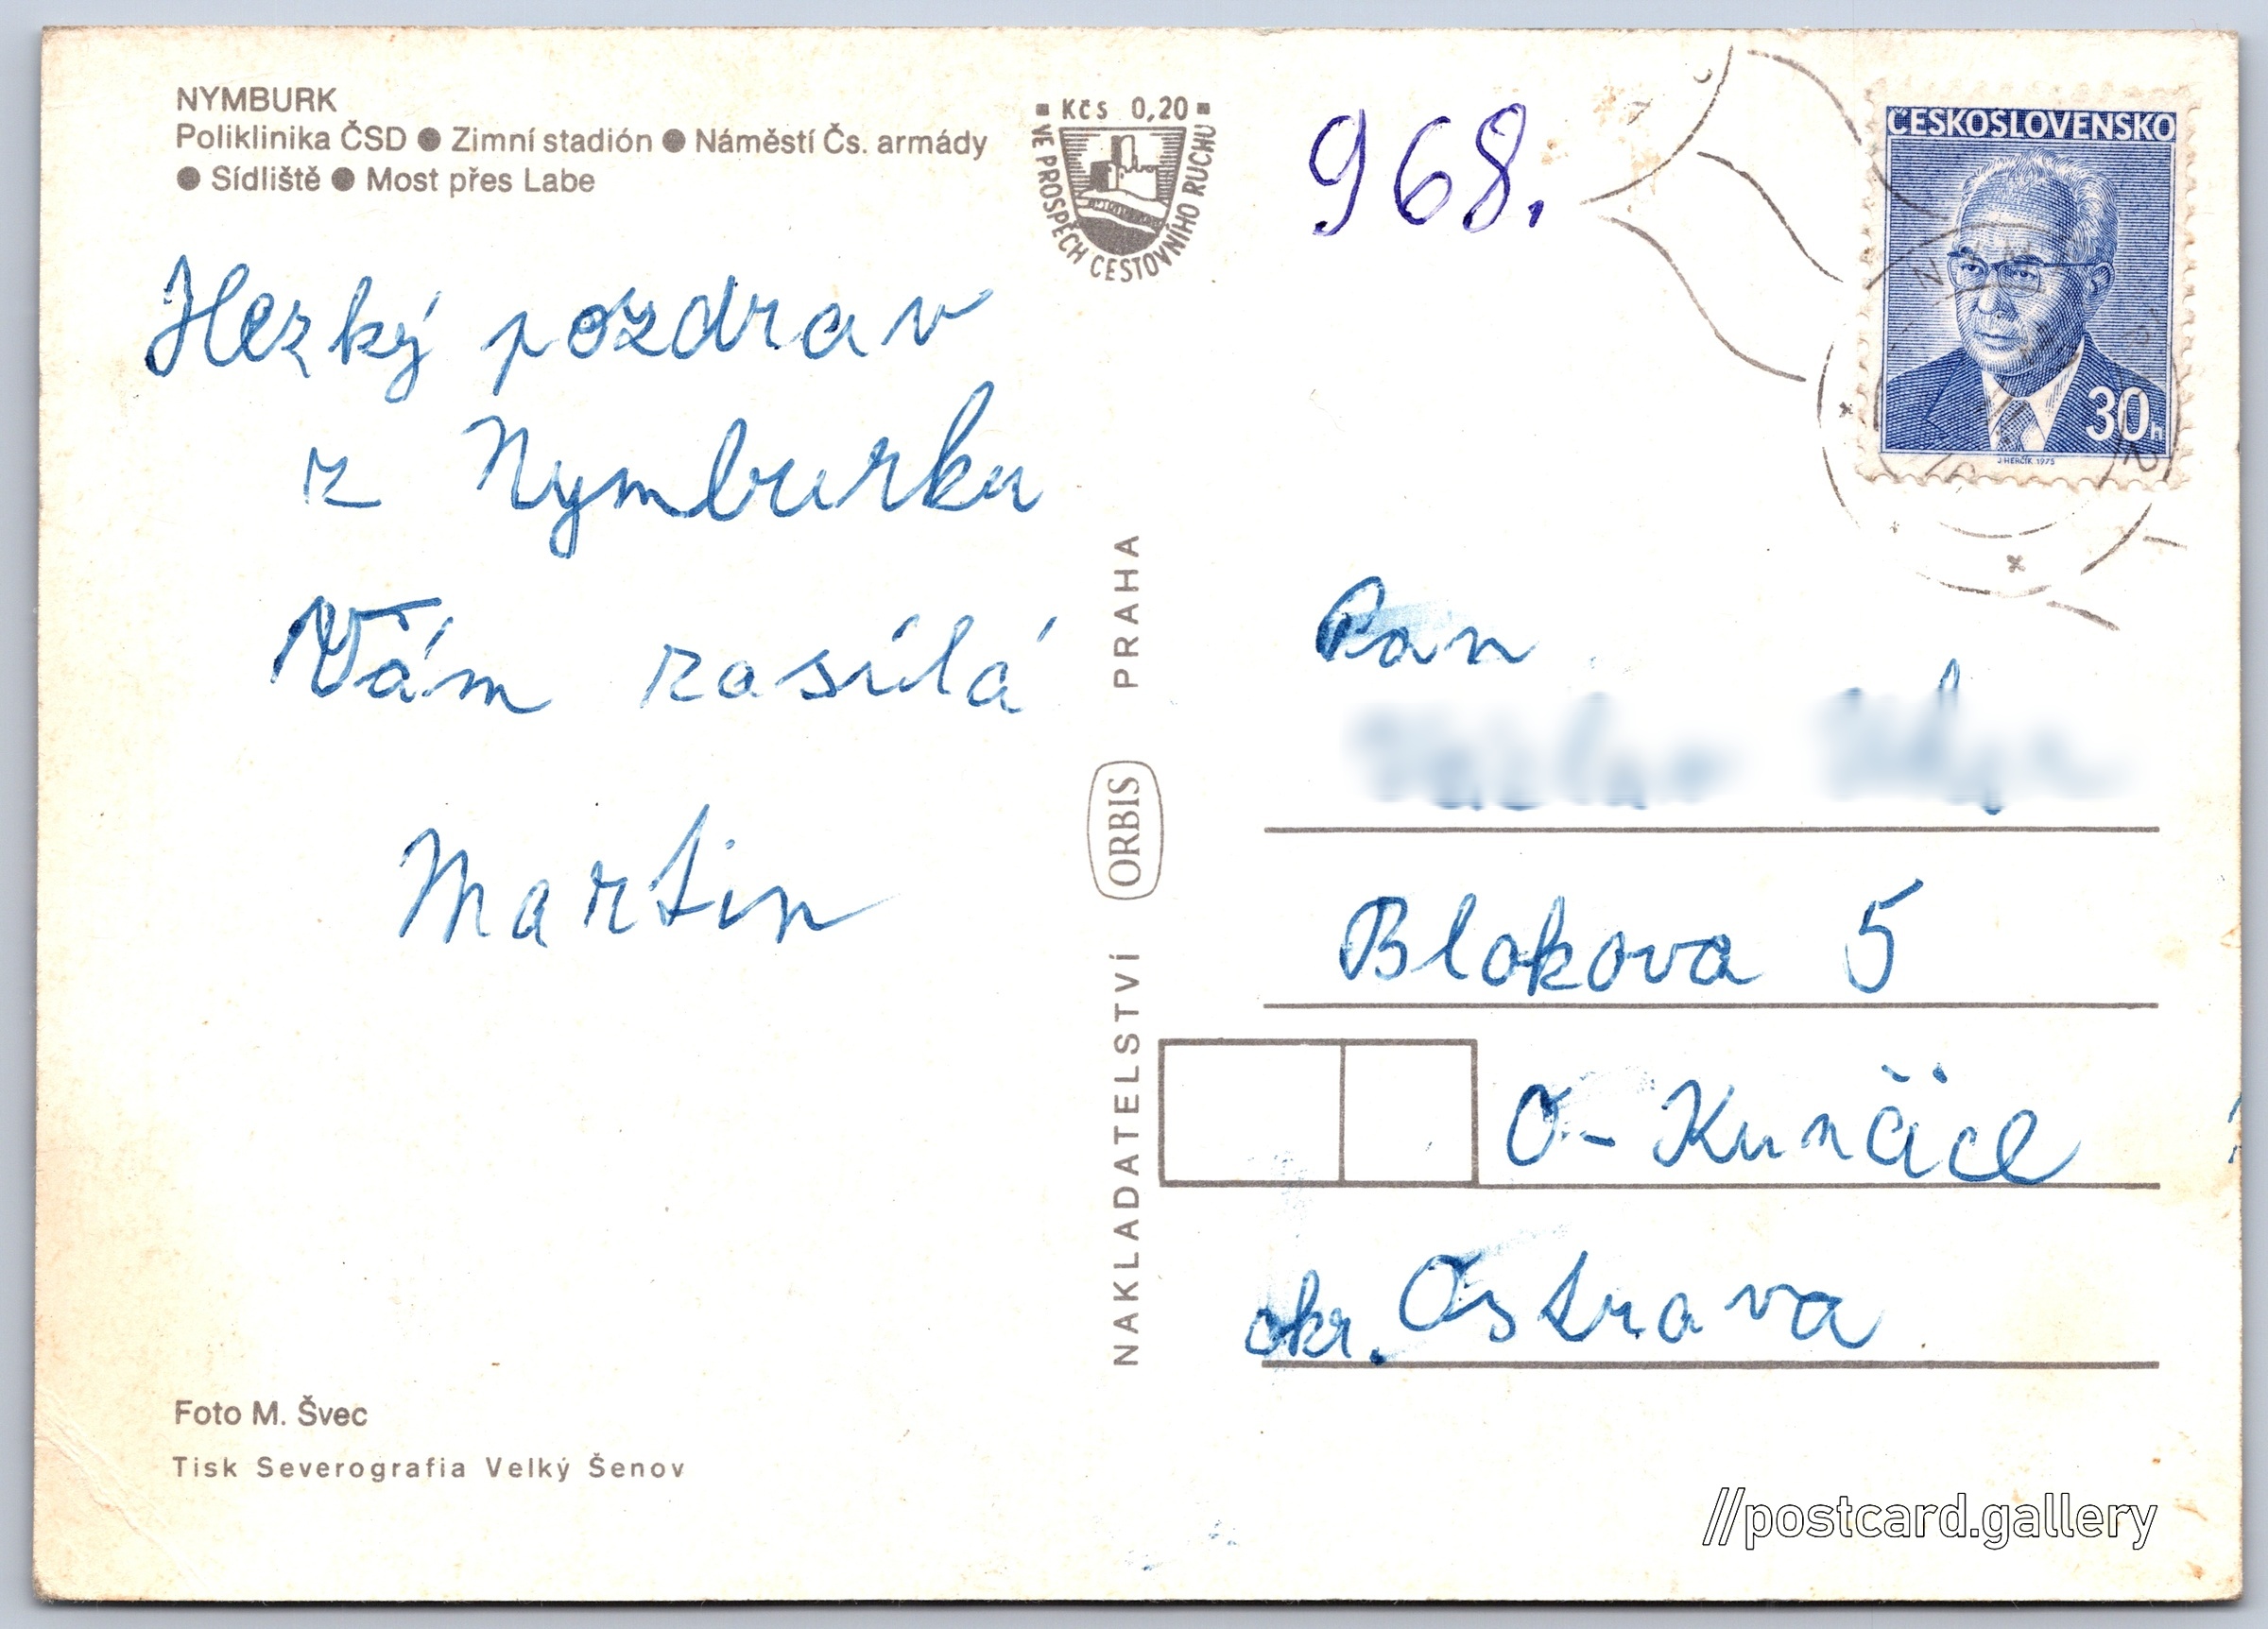 NYMBURK
Poliklinika ČSD ● Zimní stadión ● Náměstí Čs. armády
● Sídliště ● Most přes Labe
Kčs 0,20
VE PROSPĚCH CESTOVNÍHO RUCHU
968.
ČESKOSLOVENSKO
30h
J. HERČÍK 1975
Hezký pozdrav
z Nymburku
Vám zasílá
Martin
NAKLADATELSTVÍ ORBIS PRAHA
Pan
Blokova 5
O-Kunčice
okr. Ostrava
Foto M. Švec
Tisk Severografia Velký Šenov
//postcard.gallery